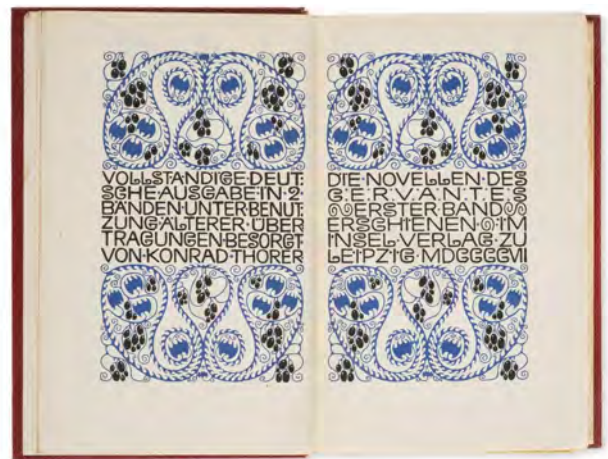 VOLLSTÄNDIGE·DEUT
SCHE·AUSGABE·IN·2·
BÄNDEN·UNTER·BENUT
ZUNG·ÄLTERER·ÜBER
TRAGUNGEN·BESORGT
VON·KONRAD·THORER
DIE·NOVELLEN·DES
C·E·R·V·A·N·T·E·S
ERSTER·BAND
ERSCHIENEN·IM
INSEL·VERLAG·ZU
LEIPZIG·MDCCCCVII